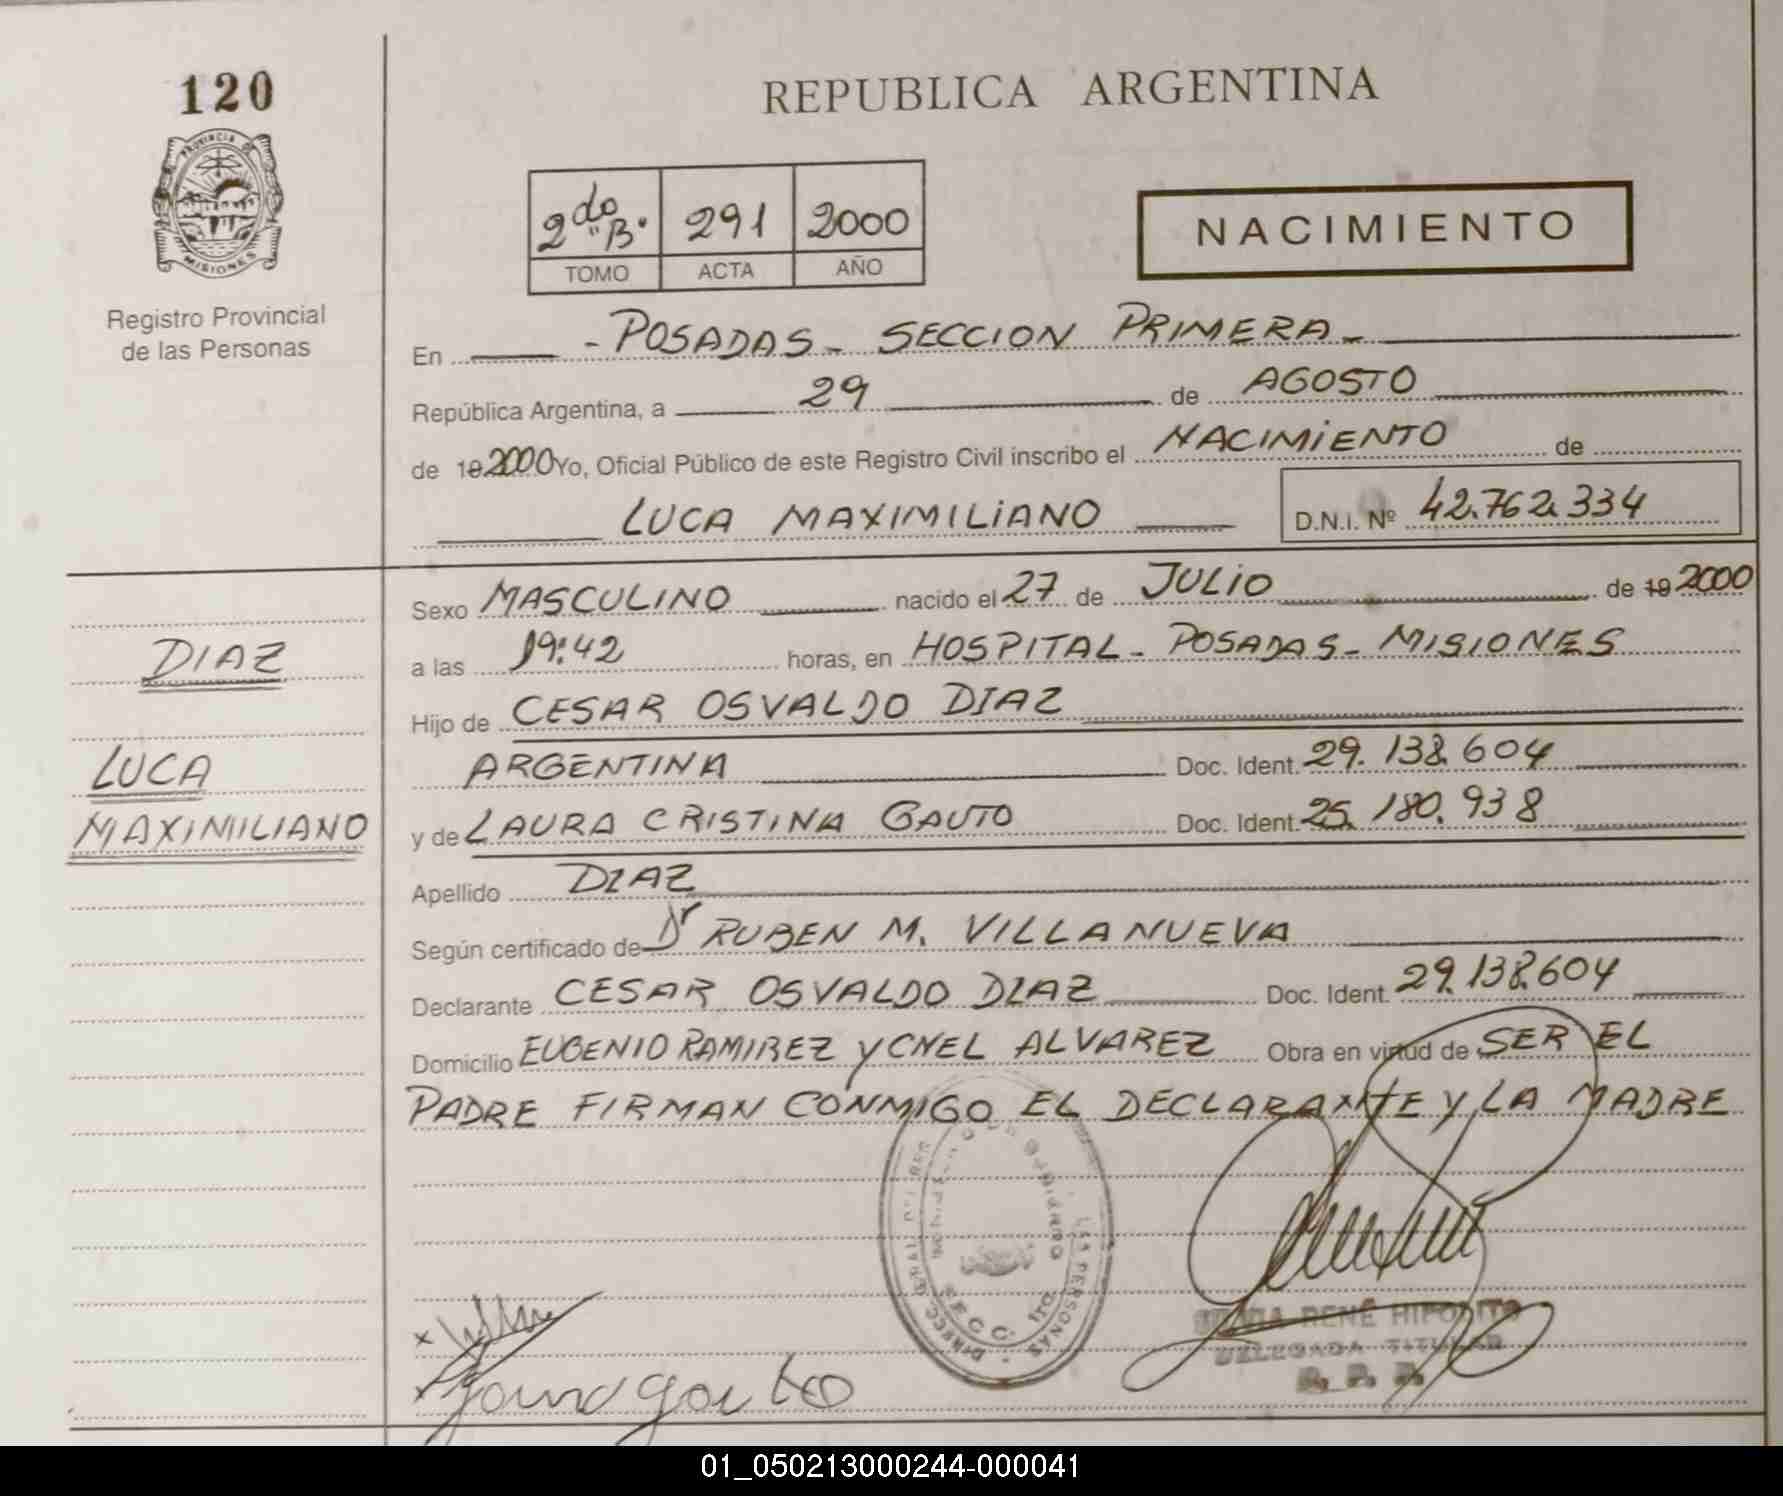 120
REPUBLICA ARGENTINA
PROVINCIA DE
MISIONES
Registro Provincial
de las Personas
2do "B"
291
2000
TOMO
ACTA
AÑO
NACIMIENTO
En - POSADAS - SECCION PRIMERA -
República Argentina, a 29 de AGOSTO
de 19 2000 Yo, Oficial Público de este Registro Civil inscribo el NACIMIENTO de
LUCA MAXIMILIANO
D.N.I. Nº 42.762.334
DIAZ
LUCA
MAXIMILIANO
Sexo MASCULINO nacido el 27 de JULIO de 19 2000
a las 19:42 horas, en HOSPITAL - POSADAS - MISIONES
Hijo de CESAR OSVALDO DIAZ
ARGENTINA Doc. Ident. 29.138.604
y de LAURA CRISTINA GAUTO Doc. Ident. 25.180.938
Apellido DIAZ
Según certificado de Dr RUBEN M. VILLANUEVA
Declarante CESAR OSVALDO DIAZ Doc. Ident. 29.138.604
Domicilio EUGENIO RAMIREZ y CNEL ALVAREZ Obra en virtud de SER EL
PADRE FIRMAN CONMIGO EL DECLARANTE Y LA MADRE
SECC. 1ra.
RENÉ HIPOLITO
DELEGADA TITULAR
01_050213000244-000041